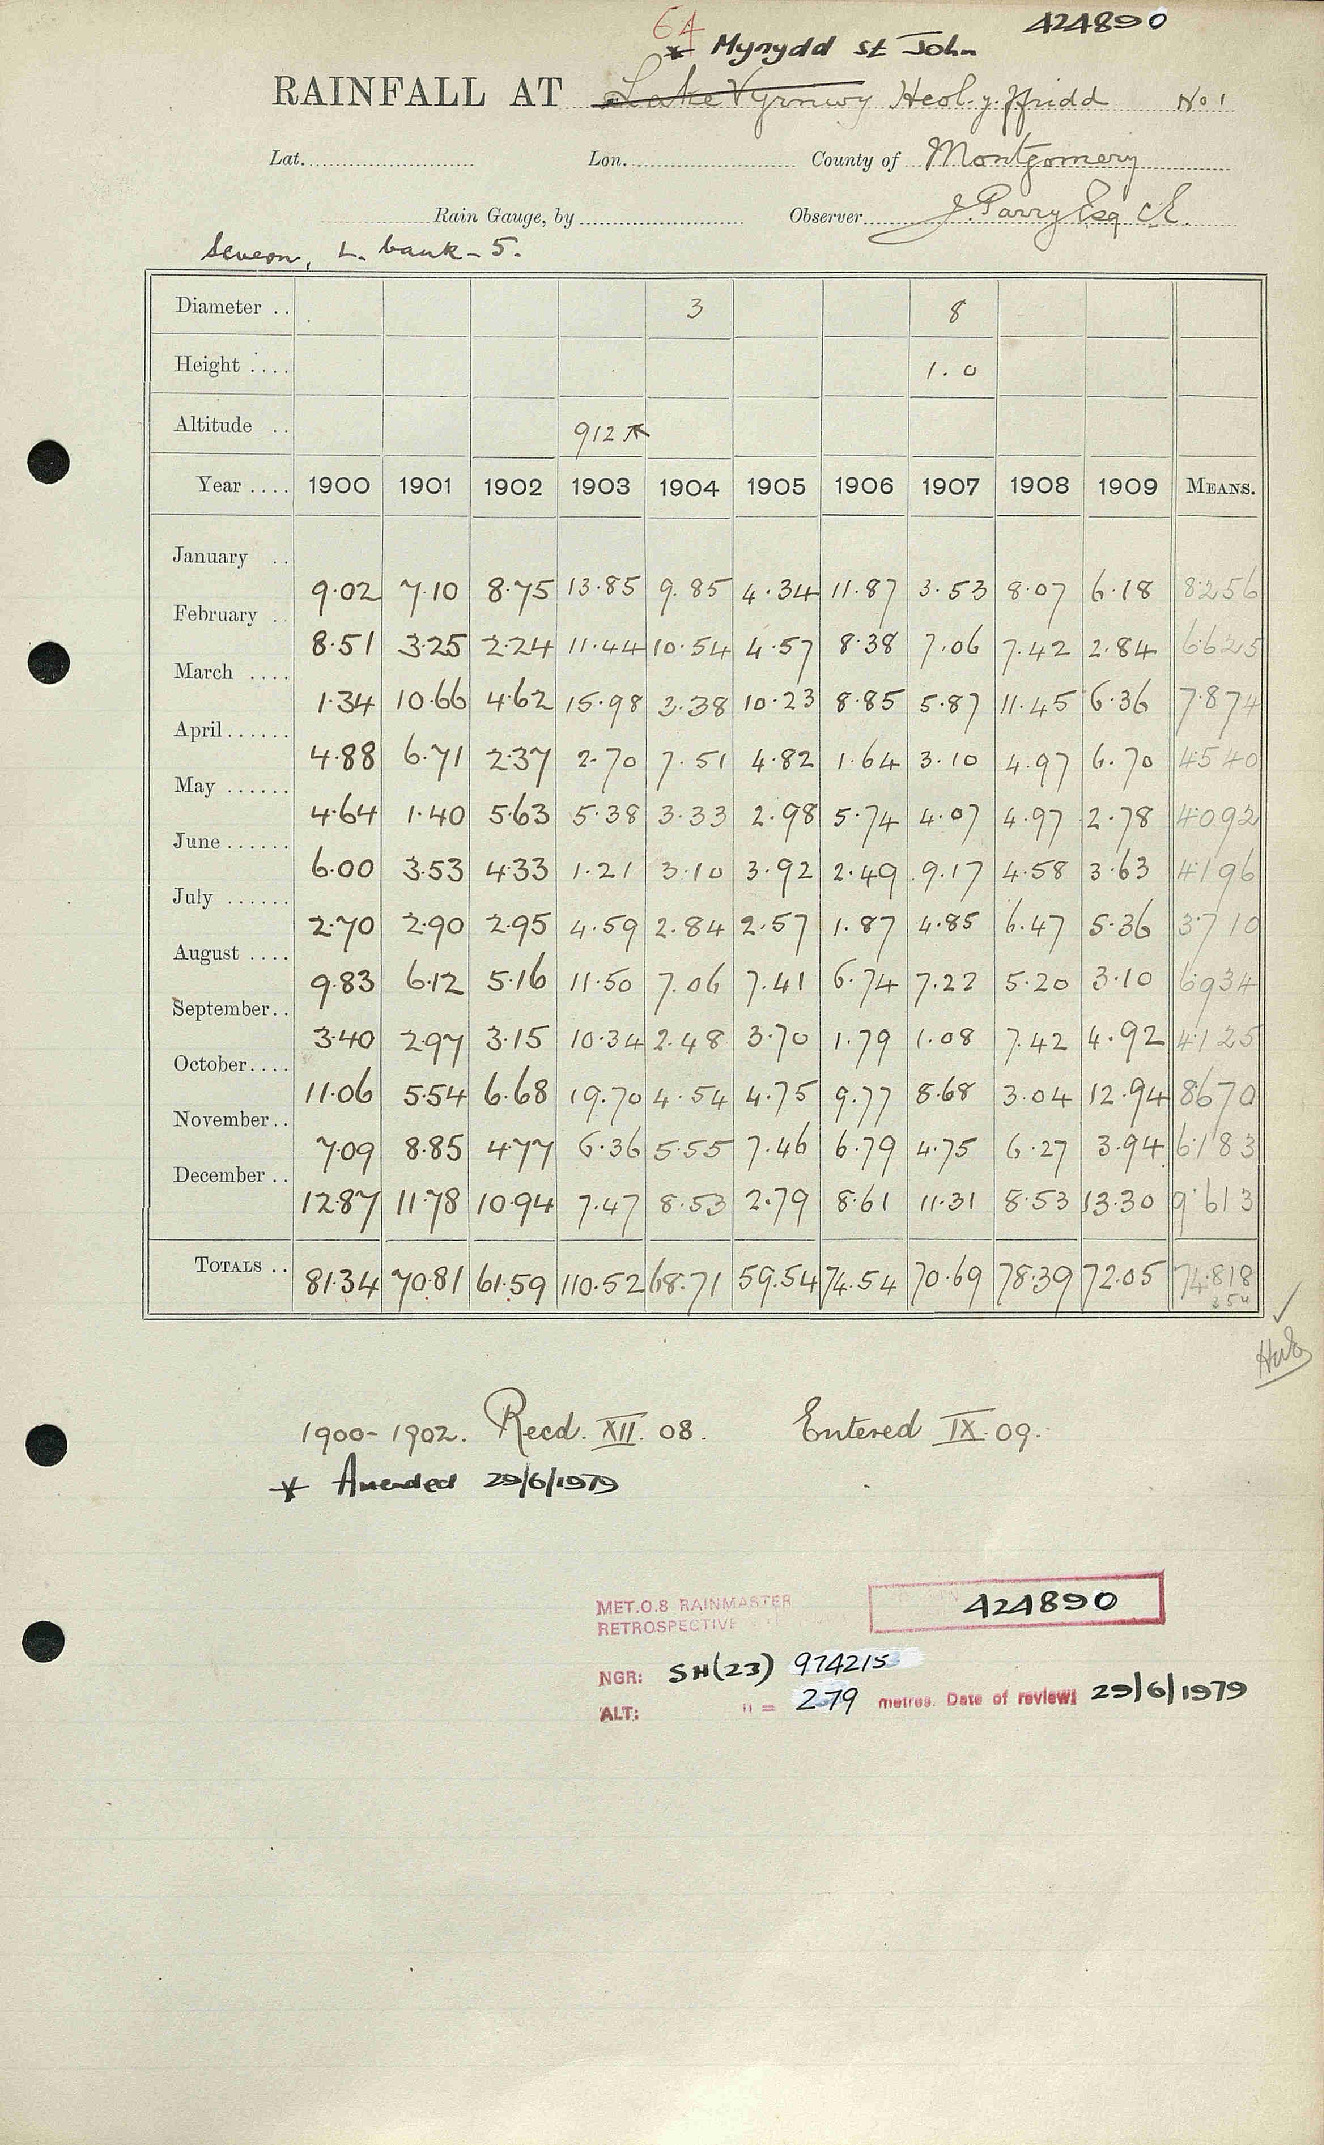 64
424890
* Mynydd St John
RAINFALL AT Lake Vyrnwy Heol-y-ffridd No 1
Lat. Lon. County of Montgomery
Rain Gauge, by Observer J. Parry Esq CE.
Severn, L. bank - 5.
Diameter .. 3 8
Height .... 1.0
Altitude .. 912 *
Year .... 1900 1901 1902 1903 1904 1905 1906 1907 1908 1909 MEANS.
January .. 9.02 7.10 8.75 13.85 9.85 4.34 11.87 3.53 8.07 6.18 8.256
February .. 8.51 3.25 2.24 11.44 10.54 4.57 8.38 7.06 7.42 2.84 6.625
March .... 1.34 10.66 4.62 15.98 3.38 10.23 8.85 5.87 11.45 6.36 7.874
April ...... 4.88 6.71 2.37 2.70 7.51 4.82 1.64 3.10 4.97 6.70 4.540
May ...... 4.64 1.40 5.63 5.38 3.33 2.98 5.74 4.07 4.97 2.78 4.092
June ...... 6.00 3.53 4.33 1.21 3.10 3.92 2.49 9.17 4.58 3.63 4.196
July ...... 2.70 2.90 2.95 4.59 2.84 2.57 1.87 4.85 6.47 5.36 3.710
August .... 9.83 6.12 5.16 11.50 7.06 7.41 6.74 7.22 5.20 3.10 6.934
September.. 3.40 2.97 3.15 10.34 2.48 3.70 1.79 1.08 7.42 4.92 4.125
October.... 11.06 5.54 6.68 19.70 4.54 4.75 9.77 8.68 3.04 12.94 8.670
November.. 7.09 8.85 4.77 6.36 5.55 7.46 6.79 4.75 6.27 3.94 6.183
December .. 12.87 11.78 10.94 7.47 8.53 2.79 8.61 11.31 8.53 13.30 9.613
TOTALS .. 81.34 70.81 61.59 110.52 68.71 59.54 74.54 70.69 78.39 72.05 74.818
1900-1902. Recd. XII. 08. Entered IX. 09.
* Amended 29/6/1979
MET.O.8 RAINMASTER
RETROSPECTIVE
424890
NGR: SH(23) 974215
ALT: " = 279 metres. Date of review: 29/6/1979